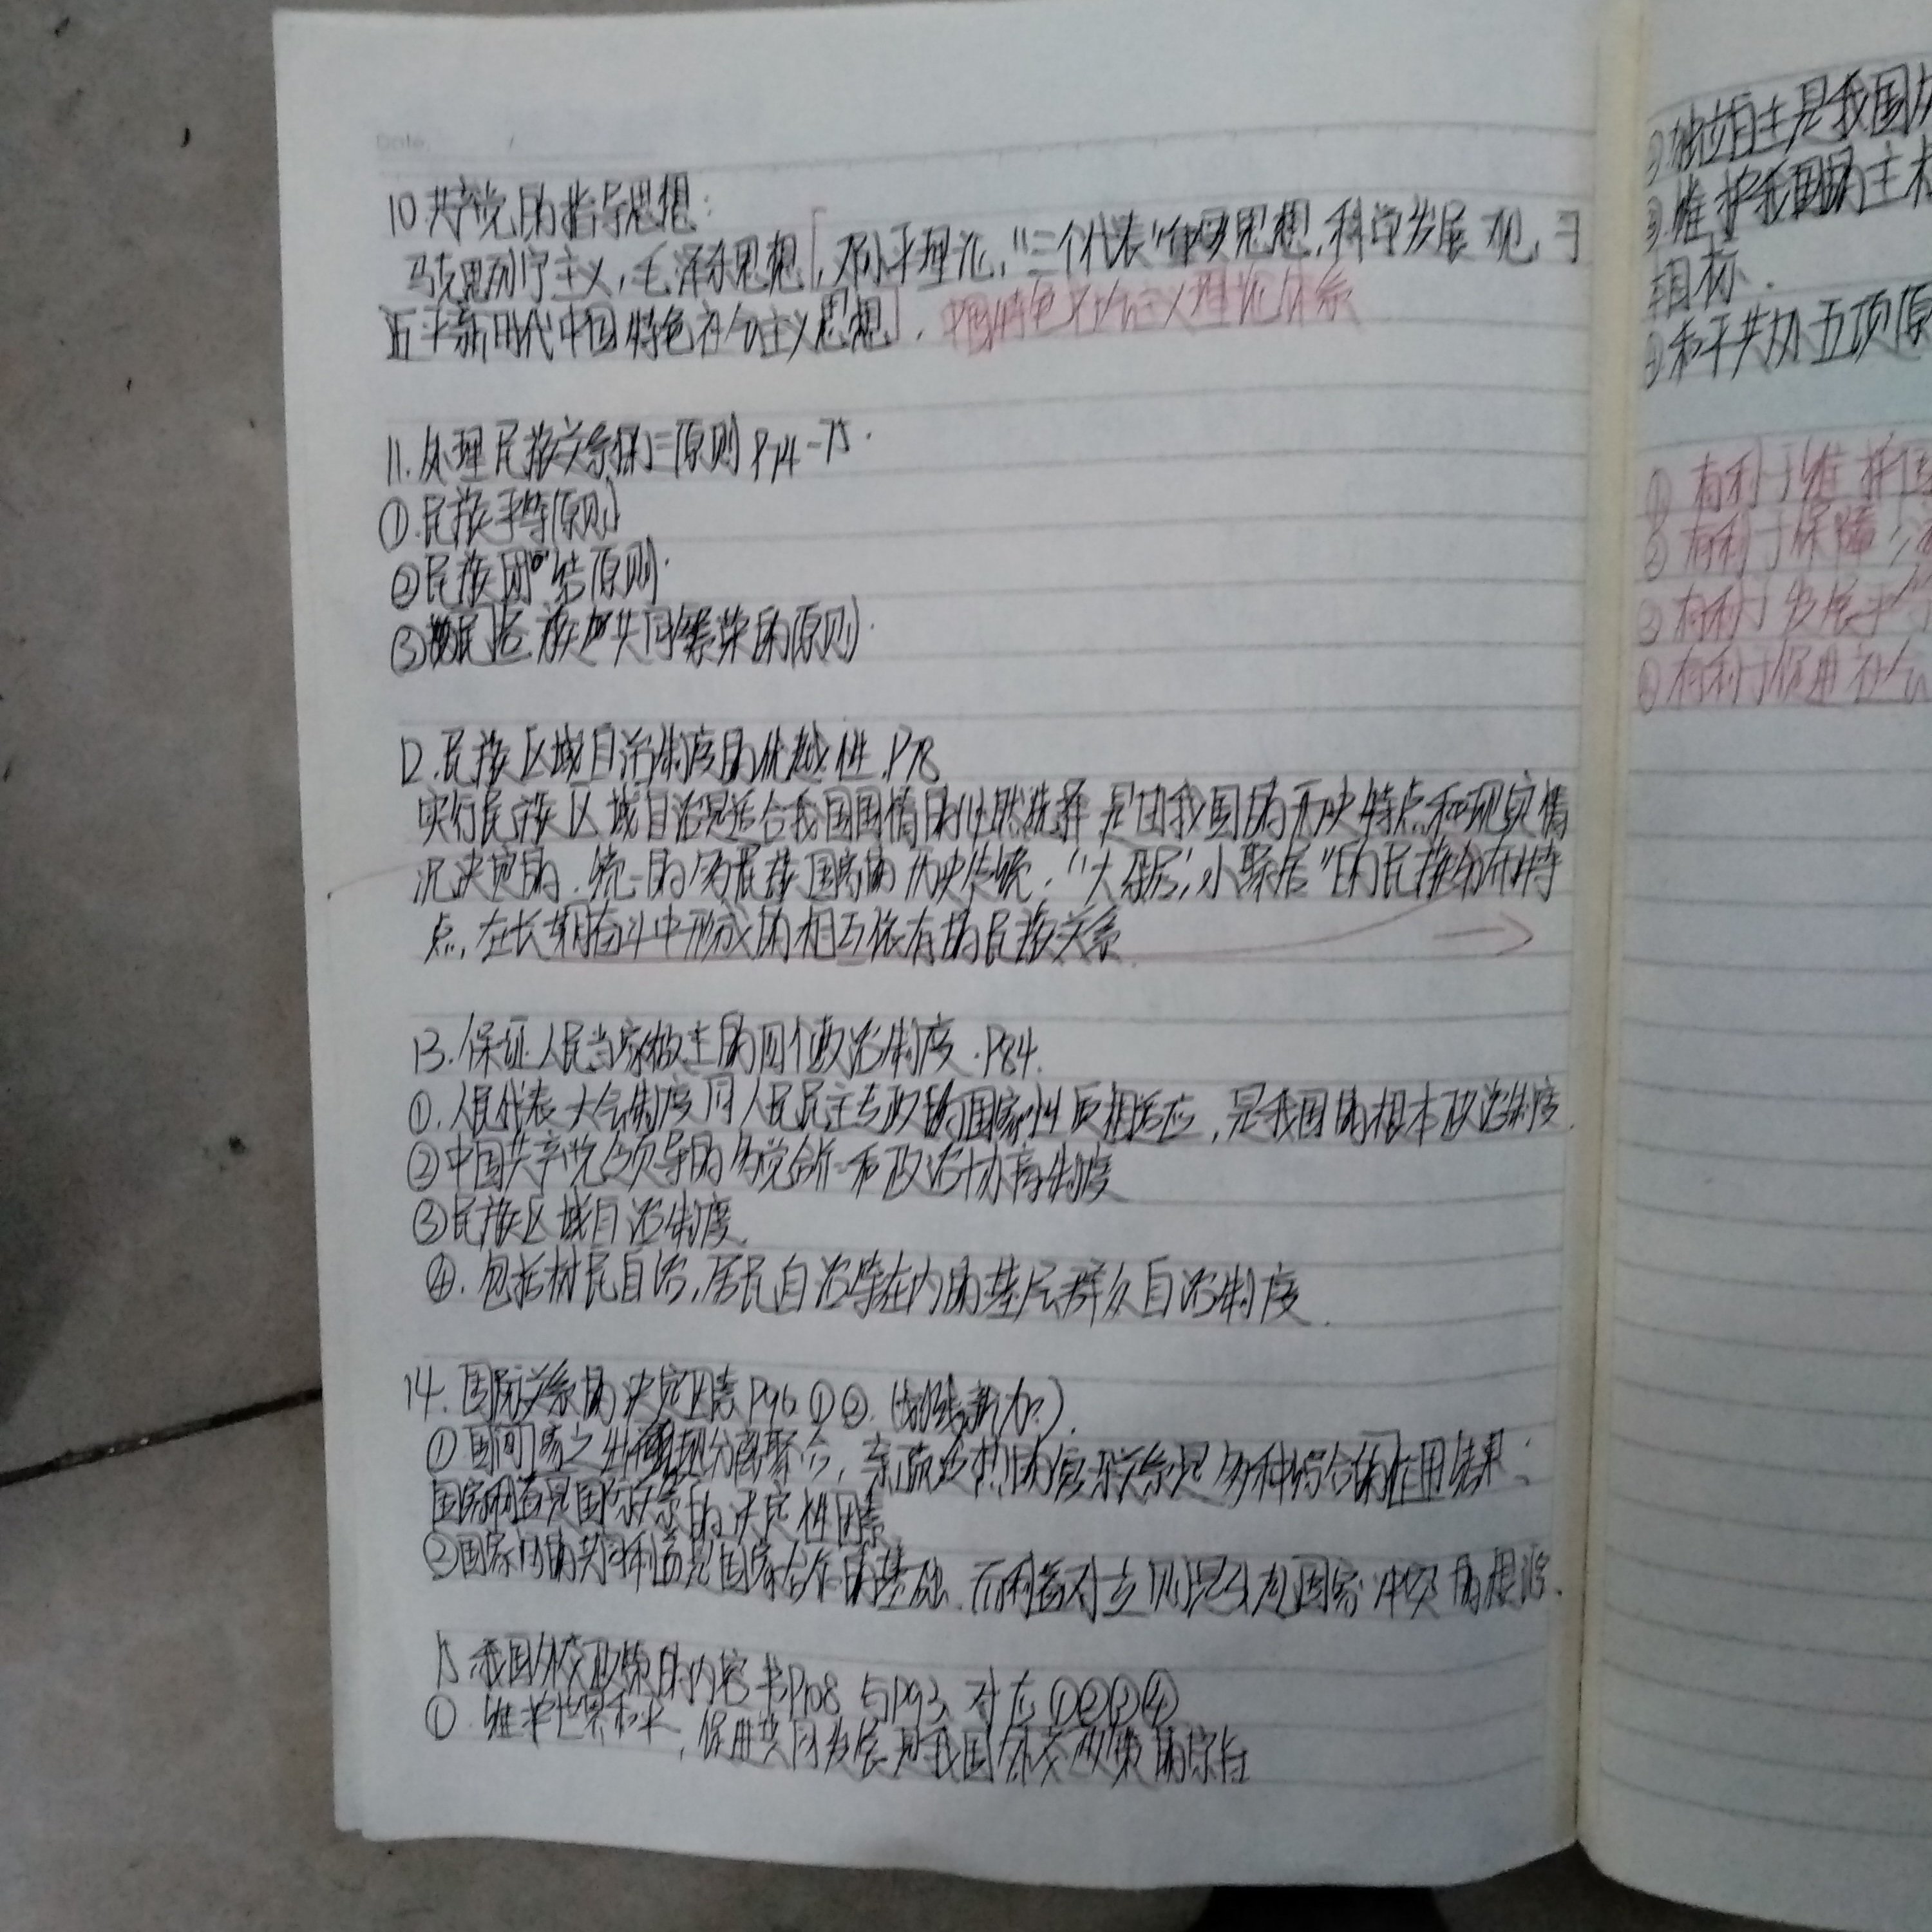 Date.
10.共产党的指导思想:
马克思列宁主义,毛泽东思想[,邓小平理论,"三个代表"重要思想,科学发展观,习
近平新时代中国特色社会主义思想]. 中国特色社会主义理论体系
11.处理民族关系的三原则 P74-75.
①.民族平等原则
②民族团结原则.
③民族共同繁荣的原则.
12.民族区域自治制度的优越性.P78
实行民族区域自治是适合我国国情的必然选择 是由我国的历史特点和现实情
况决定的.统一的多民族国家的历史传统."大杂居,小聚居"的民族分布特
点,在长期奋斗中形成的相互依存的民族关系
13.保证人民当家做主的四个政治制度.P84.
①.人民代表大会制度同人民民主专政的国家性质相适应,是我国的根本政治制度.
②中国共产党领导的多党合作和政治协商制度
③民族区域自治制度.
④.包括村民自治,居民自治等在内的基层群众自治制度.
14.国际关系的决定因素P96 ①②.(划线新加).
①国家之间出现分离聚合,亲疏 的复杂关系是多种综合的作用结果;
国家利益是国际关系的决定性因素
②国家间的共同利益是国家合作的基础.而利益对立则是引起国家冲突的根源.
15 我国外交政策的内容 书P108 与P93 对应①②③④
①.维护世界和平,促进共同发展是我国外交政策的宗旨
②独立自主是我国
③.维护我国的主权
目标.
④和平共处五项原
① 有利于维护
② 有利于保障
③ 有利于发展平等
④ 有利于促进社会